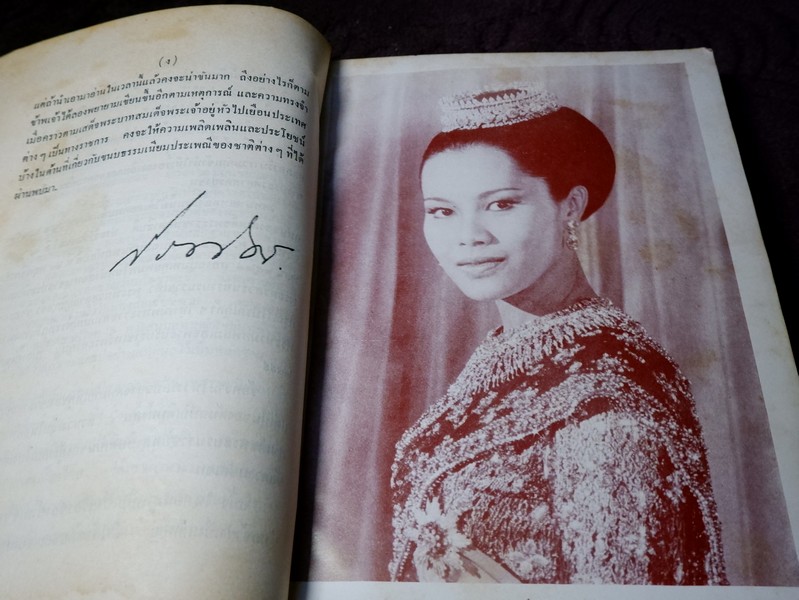 (ง)
แต่ถ้านำเอามาอ่านในเวลานี้แล้วคงจะน่าขันมาก ถึงอย่างไรก็ตาม
ข้าพเจ้าได้ลองพยายามเขียนขึ้นอีกตามเหตุการณ์ และความทรงจำ
เมื่อคราวตามเสด็จพระบาทสมเด็จพระเจ้าอยู่หัวไปเยือนประเทศ
ต่าง ๆ เป็นทางราชการ คงจะให้ความเพลิดเพลินและประโยชน์
บ้างในด้านที่เกี่ยวกับขนบธรรมเนียมประเพณีของชาติต่าง ๆ ที่ได้
ผ่านพบมา.